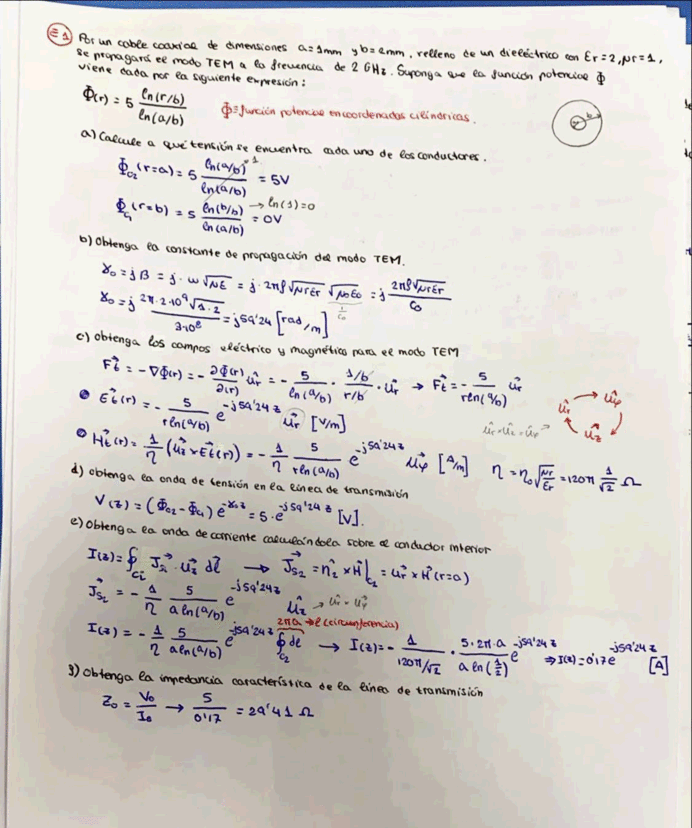 E1 Por un cable coaxial de dimensiones a=1mm y b=2mm, relleno de un dieléctrico con Er=2, μr=1,
se propagará el modo TEM a la frecuencia de 2 GHz. Suponga que la función potencial Φ
viene dada por la siguiente expresión:
Φ(r) = 5 ln(r/b) / ln(a/b)
Φ≡función potencial en coordenadas cilíndricas.
a b
a) Calcule a qué tensión se encuentra cada uno de los conductores.
Φc2 (r=a) = 5 ln(a/b) / ln(a/b) = 5V
1
Φc1 (r=b) = 5 ln(b/b) / ln(a/b) = 0V
→ ln(1)=0
b) Obtenga la constante de propagación del modo TEM.
γ0 = jβ = j·ω√με = j·2πf√μrεr √μ0ε0 = j 2πf√μrεr / c0
1/c0
γ0 = j 2π·2·10⁹√1·2 / 3·10⁸ = j59'24 [rad/m]
c) Obtenga los campos eléctrico y magnético para el modo TEM
Ft = -∇Φ(r) = - ∂Φ(r)/∂(r) ûr = - 5/ln(a/b) · 1/b / r/b · ûr → Ft = - 5/rln(a/b) ûr
• Et(r) = - 5/rln(a/b) e^-j59'24z ûr [V/m]
ûr ûφ ûz
ûr×ûz=ûφ
• Ht(r) = 1/η (ûz×Et(r)) = - 1/η 5/rln(a/b) e^-j59'24z ûφ [A/m] η = η0√μr/εr = 120π 1/√2 Ω
d) obtenga la onda de tensión en la línea de transmisión
V(z) = (Φc2 - Φc1) e^-γ0z = 5·e^-j59'24z [V].
e) Obtenga la onda de corriente calculándola sobre el conductor interior
I(z) = ∮ci Js·ûz dl → Js2 = n̂2 × H|c2 = ûr × H(r=a)
Js2 = - 1/η 5/aln(a/b) e^-j59'24z ûz → ûr×ûφ
2πa → l (circunferencia)
I(z) = - 1/η 5/aln(a/b) e^-j59'24z ∮c2 dl → I(z) = - 1/120π/√2 · 5·2π·a / a ln(1/2) e^-j59'24z ⇒ I(z) = 0'17e^-j59'24z [A]
g) Obtenga la impedancia característica de la línea de transmisión
Z0 = V0/I0 → 5/0'17 = 29'41 Ω